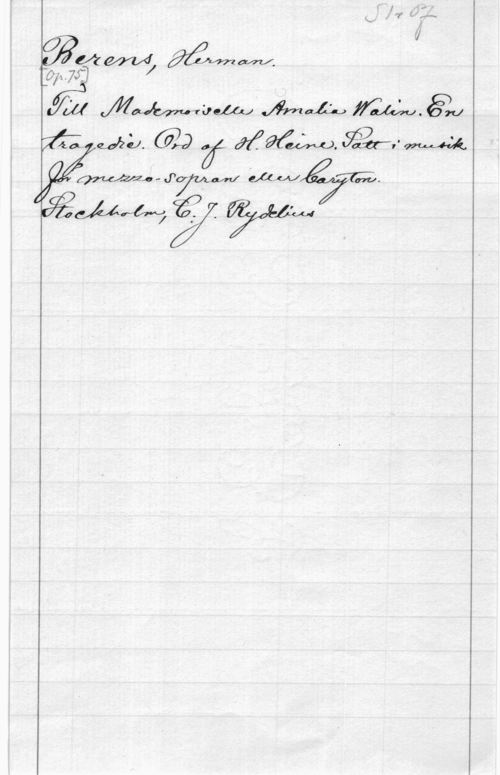 Berens, Herman.
[Op.75]
Till Mademoiselle Amalia Walin. En
tragedie. Ord af H. Heine. Satt i musik
för mezzo-sopran eller baryton.
Stockholm, C. J. Rydelius